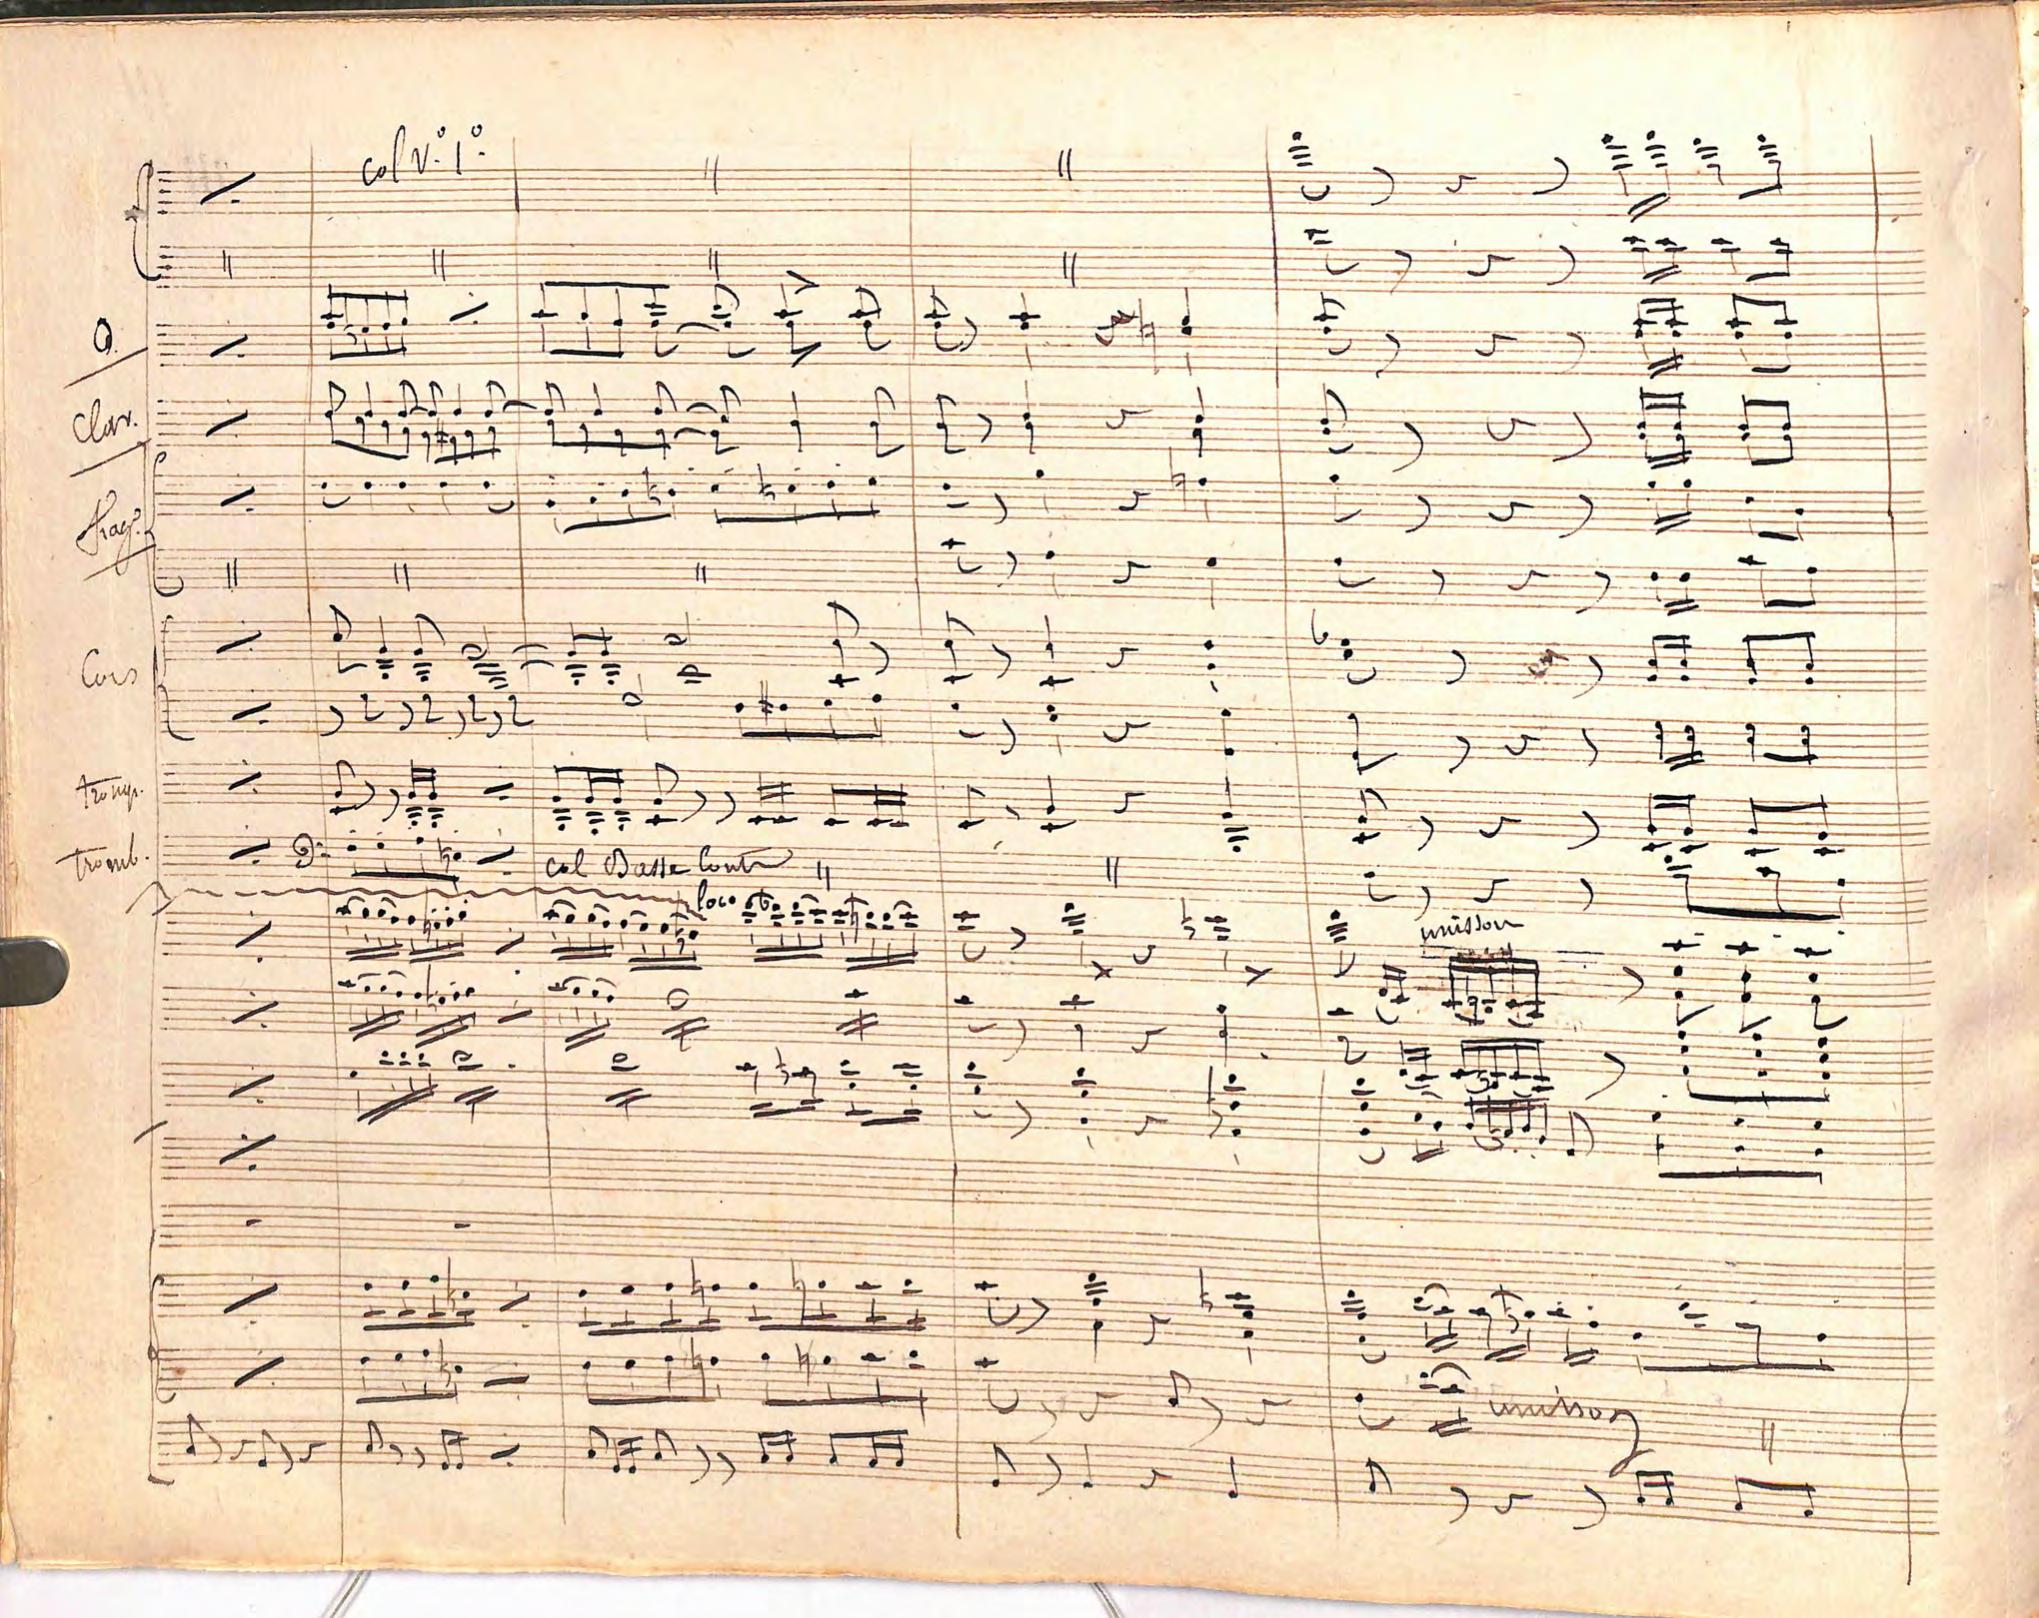 col V.º 1º.
O.
Clar.
fag.
Cors
tromp.
tromb.
col Basse Cont
loco
unisson
unisson